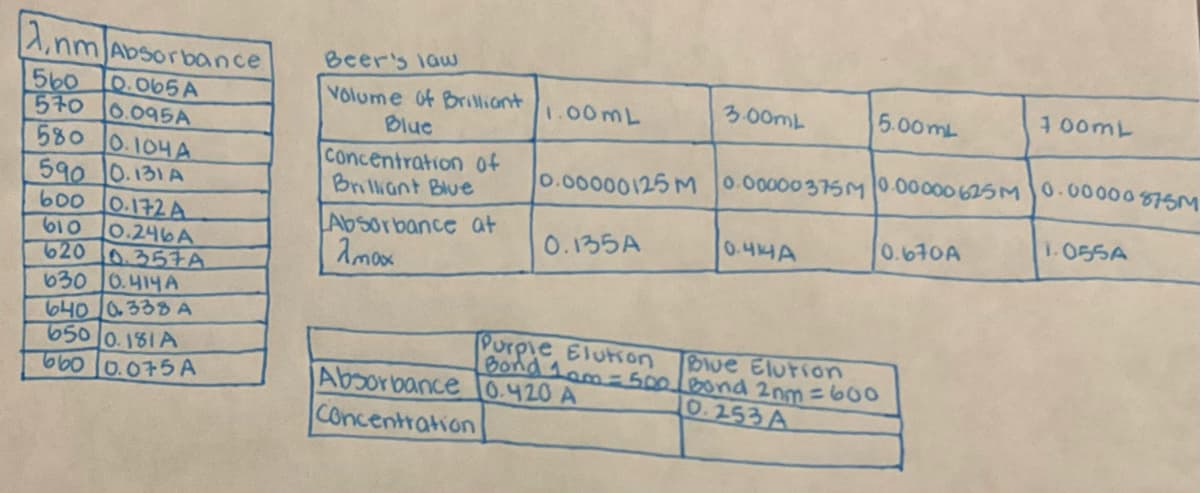 λ,nm Absorbance
560 0.065A
570 0.095A
580 0.104A
590 0.131A
600 0.172A
610 0.246A
620 0.357A
630 0.414A
640 0.338A
650 0.181A
660 0.075A
Beer's law
Volume of Brilliant Blue 1.00mL 3.00mL 5.00mL 7.00mL
Concentration of Brilliant Blue 0.00000125M 0.00000375M 0.00000625M 0.00000875M
Absorbance at λmax 0.135A 0.414A 0.670A 1.055A
Purple Elution Blue Elution
Band 1nm=500 Band 2nm=600
Absorbance 0.420 A 0.253A
Concentration